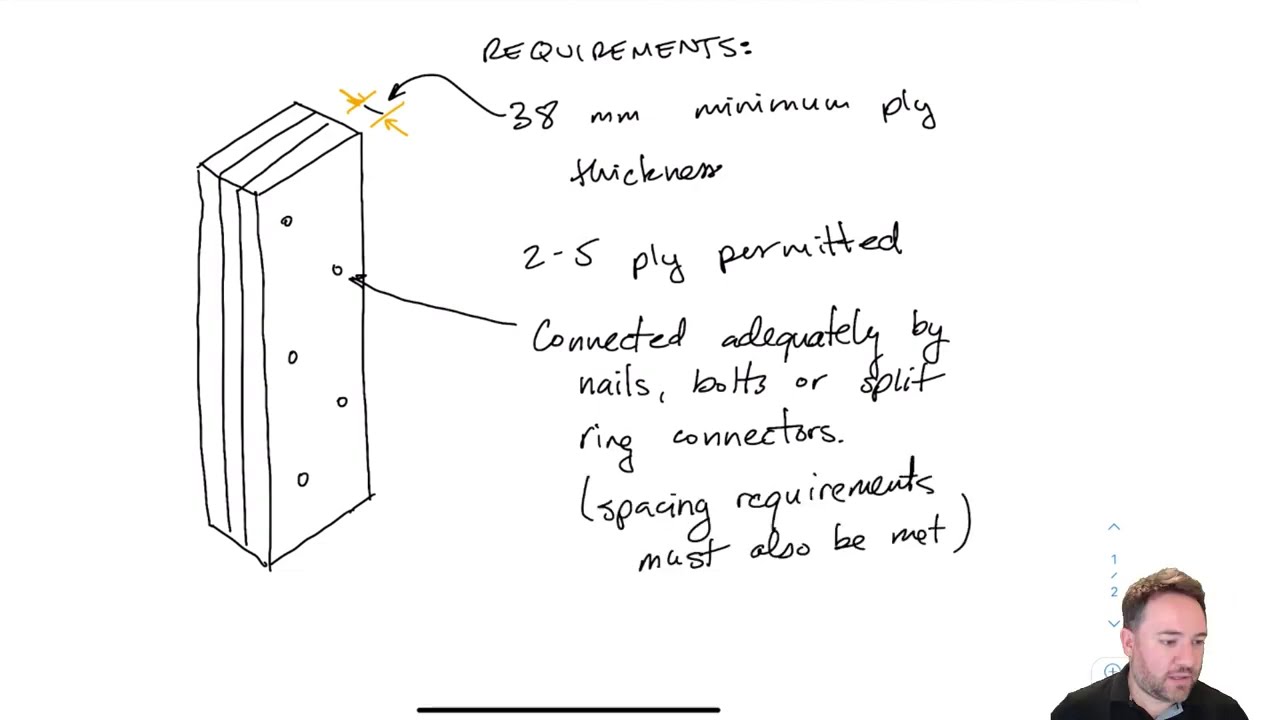 REQUIREMENTS:
38 mm minimum ply
thickness
2-5 ply permitted
Connected adequately by
nails, bolts or split
ring connectors.
(spacing requirements
must also be met)
1
/
2